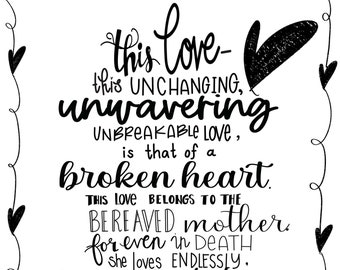 this love-
this UNCHANGING,
unwavering
UNBREAKABLE LOVE,
is that of a
broken heart.
THIS LOVE BELONGS TO THE
BEREAVED mother.
for even in DEATH
she loves ENDLESSLY.